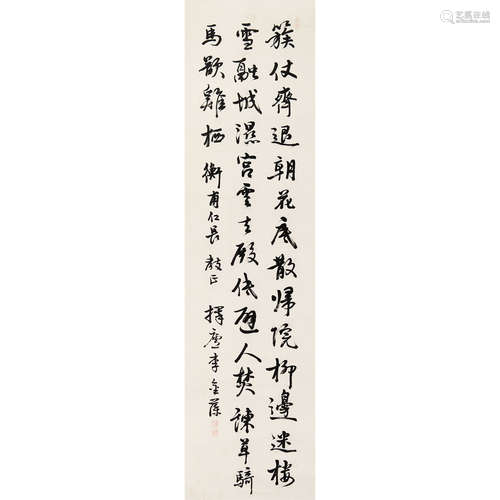 簇仗齊退朝花底散歸院柳邊迷樓
雪融城濕宮雲去殿低避人焚諫草騎
馬欲雞栖 衡甫仁長 教正 擇廬李金藻
艺狐在线